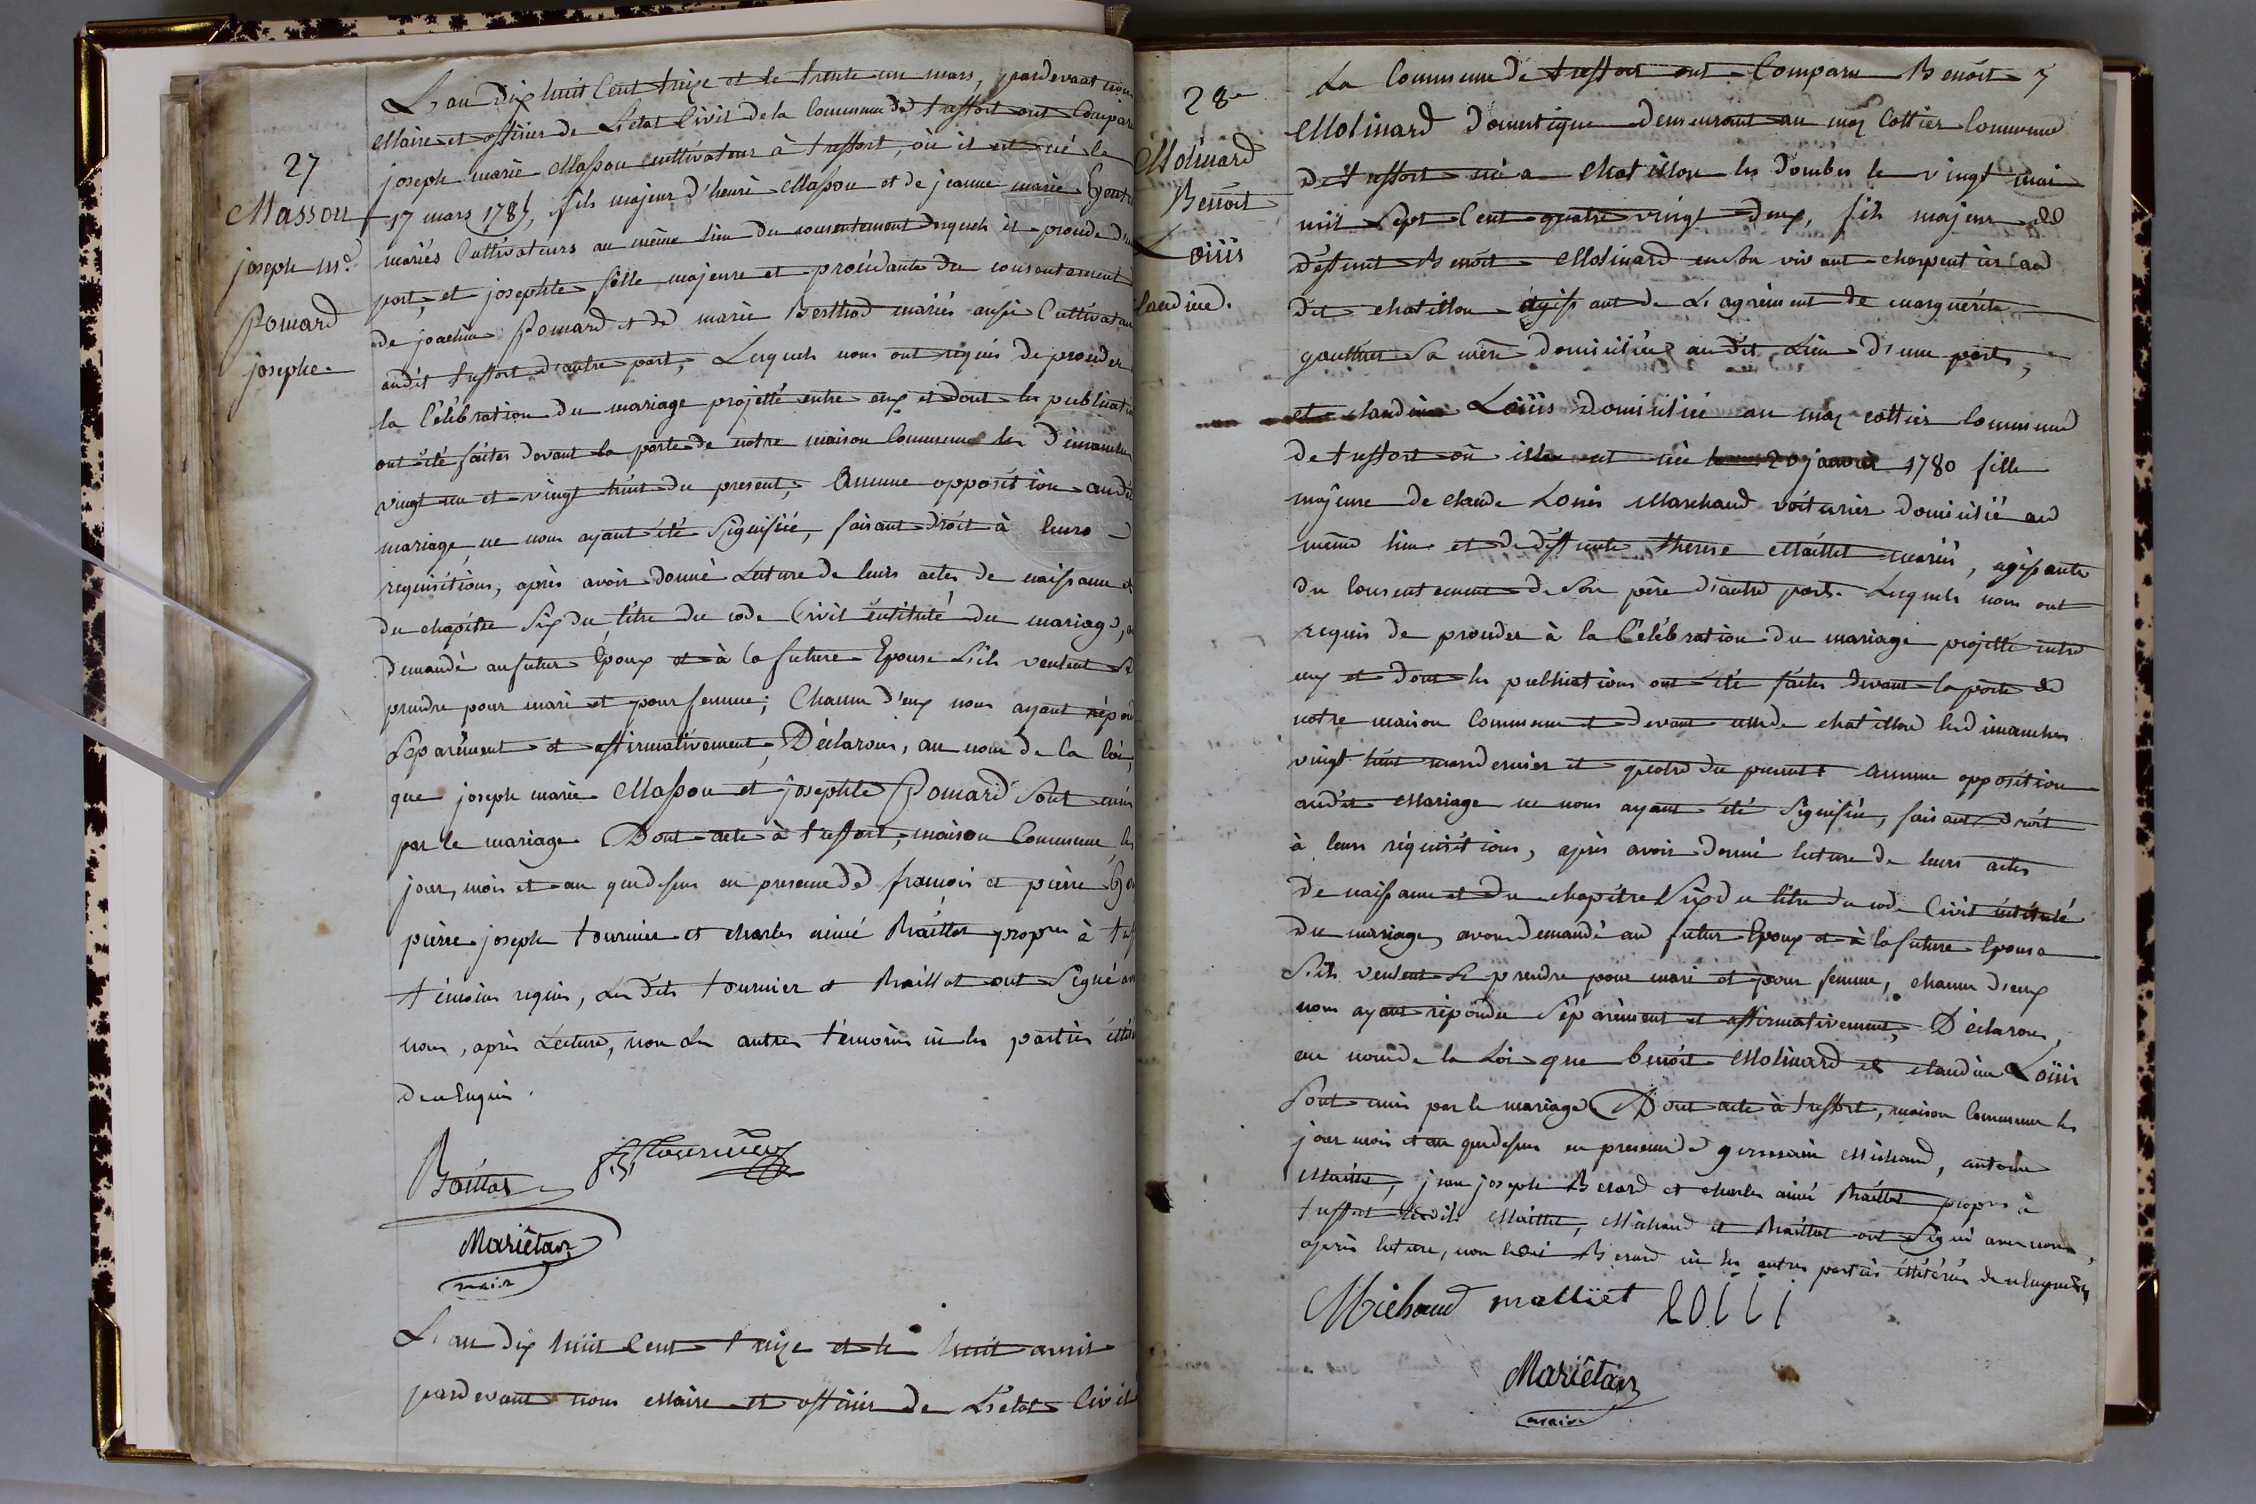 27
Masson
joseph m.e
Pomard
josephe.
L'an dix huit Cent treize et le trente un mars, pardevant nous
Maire et officier de L'etat Civil de la Commune de treffort ont Comparu
joseph marie Masson cultivateur à treffort, où il est né le
17 mars 1785, fils majeur d'henri Masson et de jeanne marie
mariés Cultivateurs au même lieu du consentement desquels il procède d'une
part, et josephte fille majeure et procédante du consentement
de joachin Pomard et de marie Berthod mariés aussi Cultivateurs
audit treffort d'autre part, Lesquels nous ont requis de proceder
la Célébration du mariage projetté entre eux et dont les publications
ont été faites devant la porte de notre maison Commune les dimanches
vingt un et vingt huit du present, Aucune opposition audit
mariage ne nous ayant été Signifiée, faisant droit à leurs
requisitions, après avoir donné Lecture de leurs actes de naissance et
du chapitre Six du titre du code Civil intitulé du mariage,
demandé au futur Epoux et à la future Epouse s'ils veulent se
prendre pour mari et pour femme; Chacun d'eux nous ayant répondu
Séparément et affirmativement, Déclarons, au nom de la loi,
que joseph marie Masson et josephte Pomard Sont unis
par le mariage Dont acte à treffort, maison Commune, les
jour, mois et an que dessus en presence de françois et pierre
pierre joseph tournier et charles aiméRaillat prop.res à
témoins requis, Les dits tournier et Raillat ont Signé avec
nous, après Lecture, non les autres témoins ni les parties
de ce Enquis.
Raillat
Tournier
Mariétan
maire
L'an dix huit Cent treize et le huit avril
pardevant nous Maire et officier de L'etat Civil
28e
Molinard
Benoit
Loüis
claudine.
La Commune de treffort ont Comparu Benoit
Molinard domestique demeurant au maz Cottier Commune
de treffort né a Chatillon les Dombes le vingt mai
mil Sept Cent quatre vingt deux, fils majeur de
deffunt Benoit Molinard en Son vivant charpentier au
dit chatillon agissant de L'agrément de marguerite
gauthier Sa mère domiciliée audit Lieu d'une part,
et claudine Loüis domiciliée au maz cottier Commune
de treffort où elle est née le 20 janvier 1780 fille
majeure de claude Louis Marchand voiturier domicilié au
même lieu et de deffunte therese Maillet mariés, agissante
du consentement de Son père d'autre part. Lesquels nous ont
requis de proceder à la Célébration du mariage projetté entre
eux et dont les publications ont été faites devant la porte de
notre maison Commune et devant celle de chatillon les dimanches
vingt huit mars dernier et quatre du present Aucune opposition
audit Mariage ne nous ayant été Signifiée, faisant droit
à leurs réquisitions, après avoir donné lecture de leurs actes
de naissance et du chapitre Six du titre du code Civil intitulé
Du mariage, avons demandé au futur Epoux et à la future Epouse
S'ils veulent Se prendre pour mari et pour femme, chacun d'eux
nous ayant répondu Séparément et affirmativement, Déclarons,
au nom de la Loi que benoit Molinard et claudine Loüis
Sont unis par le mariage Dont acte à treffort, maison Commune les
jour mois et an que dessus en presence de germain Michaud, antoine
Maillet, jean joseph Berard et charles aimé Raillat propres à
treffort lesdits Maillet, Michaud et Raillat ont Signé avec nous
après lecture, non ledit Berard ni les autres parties illitérées de ce Enquis
Michaud malliet
Mariétan
maire